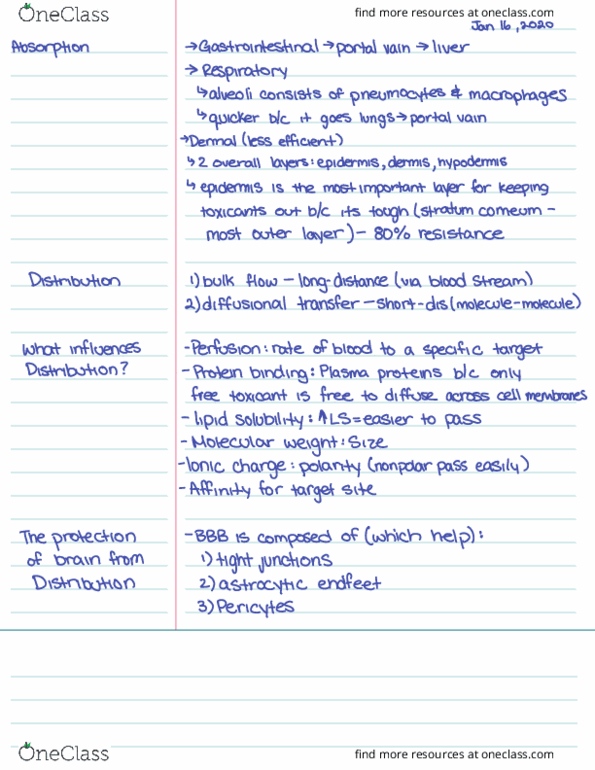 OneClass
find more resources at oneclass.com
Jan 16, 2020
Absorption
→Gastrointestinal →portal vain →liver
→ Respiratory
↳alveoli consists of pneumocytes & macrophages
↳quicker b/c it goes lungs→portal vain
→Dermal (less efficient)
↳2 overall layers: epidermis, dermis, hypodermis
↳ epidermis is the most important layer for keeping
toxicants out b/c its tough (stratum corneum -
most outer layer) - 80% resistance
Distribution
1) bulk flow - long-distance (via blood stream)
2) diffusional transfer - short-dis (molecule-molecule)
What influences
Distribution?
-Perfusion: rate of blood to a specific target
- Protein binding: Plasma proteins b/c only
free toxicant is free to diffuse across cell membranes
- lipid solubility: ↑LS = easier to pass
- Molecular weight: Size
-Ionic charge: polarity (nonpolar pass easily)
- Affinity for target site
The protection
of brain from
Distribution
-BBB is composed of (which help):
1) tight junctions
2) astrocytic endfeet
3) Pericytes
OneClass
find more resources at oneclass.com